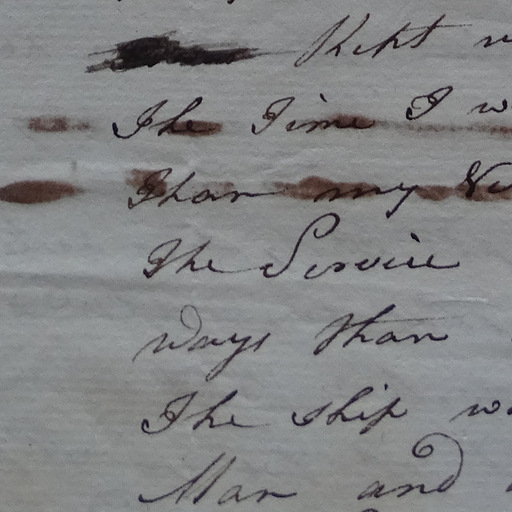 Kept
The Time I w
Than my
The Service
Ways than
The ship w
Man and